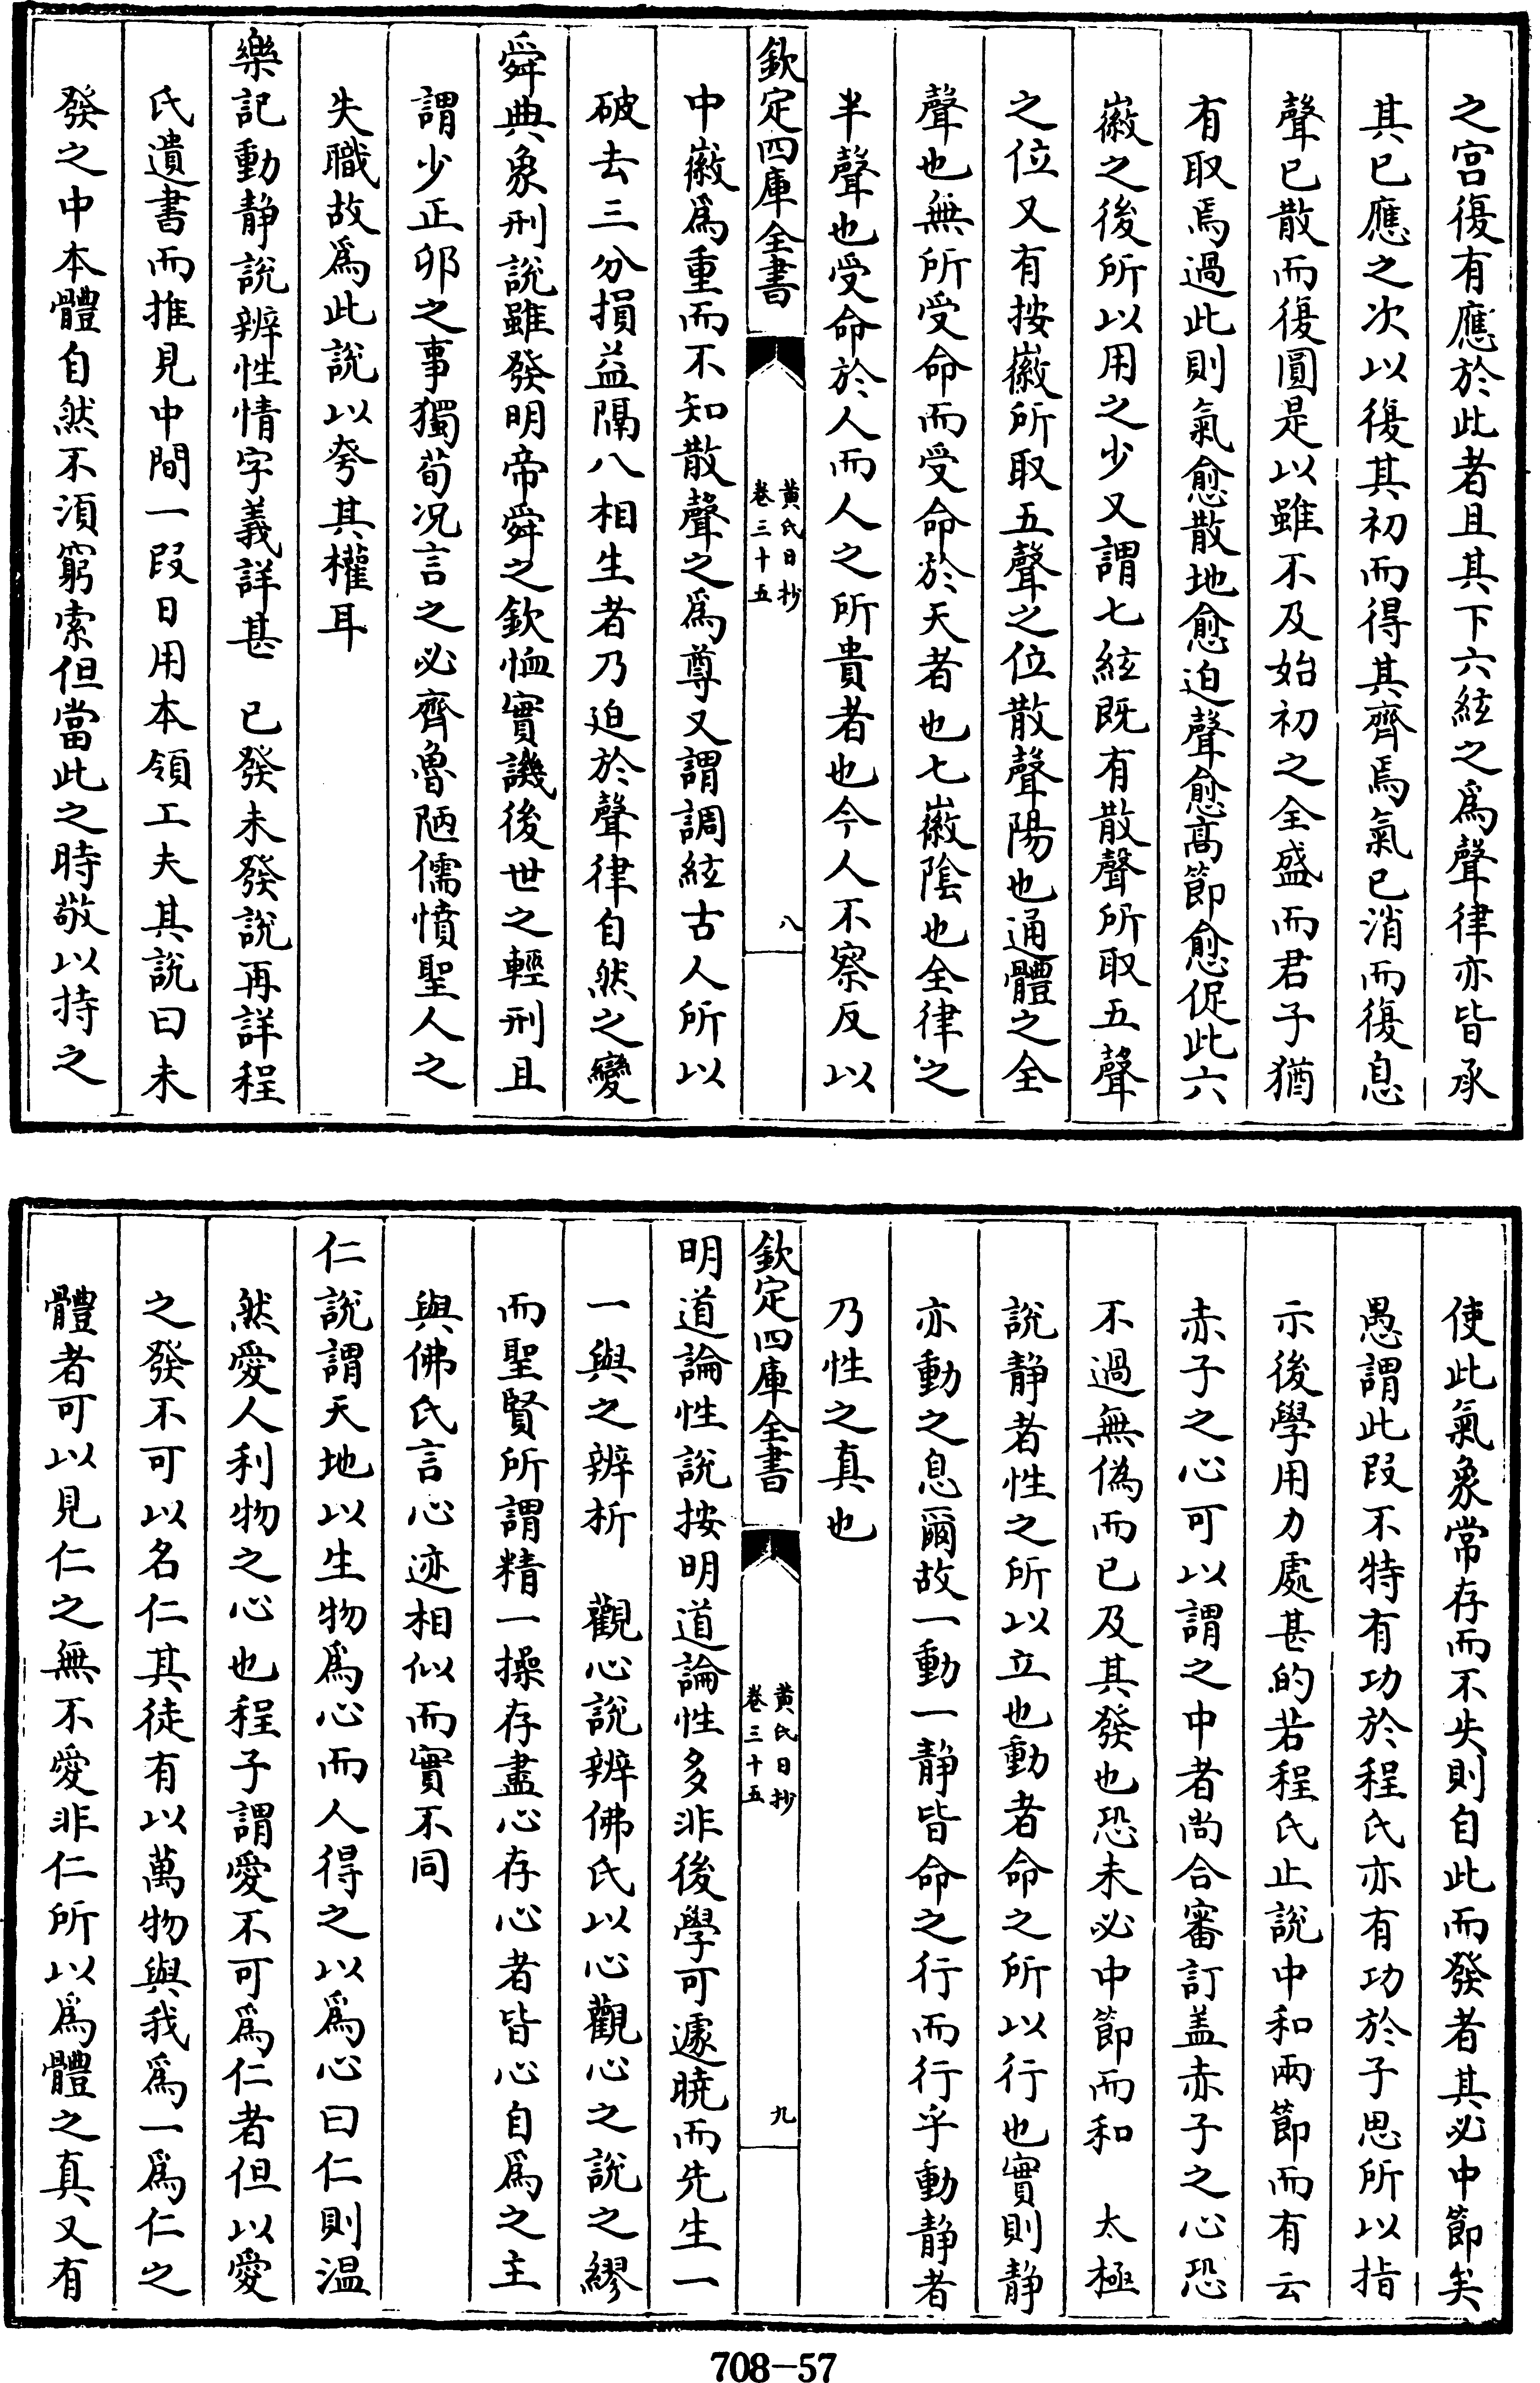 之宫復有應於此者且其下六絃之爲聲律亦皆承
其已應之次以復其初而得其齊焉氣已消而復息
聲已散而復圓是以雖不及始初之全盛而君子猶
有取焉過此則氣愈散地愈迫聲愈髙節愈促此六
徽之後所以用之少又謂七絃既有散聲所取五聲
之位又有按徽所取五聲之位散聲陽也通體之全
聲也無所受命而受命於天者也七徽隂也全律之
半聲也受命於人而人之所貴者也今人不察反以
欽定四庫全書
黄氏日抄
卷三十五
八
中徽爲重而不知散聲之爲尊又謂調絃古人所以
破去三分損益隔八相生者乃迫於聲律自然之變
舜典象刑說雖發明帝舜之欽恤實譏後世之輕刑且
謂少正卯之事獨荀况言之必齊魯陋儒憤聖人之
失職故爲此說以夸其權耳
樂記動静說辨性情字義詳甚　已發未發說再詳程
氏遺書而推見中間一段日用本領工夫其說曰未
發之中本體自然不湏窮索但當此之時敬以持之
使此氣象常存而不失則自此而發者其必中節矣
愚謂此段不特有功於程氏亦有功於子思所以指
示後學用力處甚的若程氏止說中和兩節而有云
赤子之心可以謂之中者尚合審訂盖赤子之心恐
不過無偽而已及其發也恐未必中節而和　太極
說静者性之所以立也動者命之所以行也實則静
亦動之息爾故一動一静皆命之行而行乎動静者
乃性之真也
欽定四庫全書
黄氏日抄
卷三十五
九
明道論性說按明道論性多非後學可遽曉而先生一
一與之辨析　觀心說辨佛氏以心觀心之說之繆
而聖賢所謂精一操存盡心存心者皆心自爲之主
與佛氏言心迹相似而實不同
仁說謂天地以生物爲心而人得之以爲心曰仁則温
然愛人利物之心也程子謂愛不可爲仁者但以愛
之發不可以名仁其徒有以萬物與我爲一爲仁之
體者可以見仁之無不愛非仁所以爲體之真又有
708-57